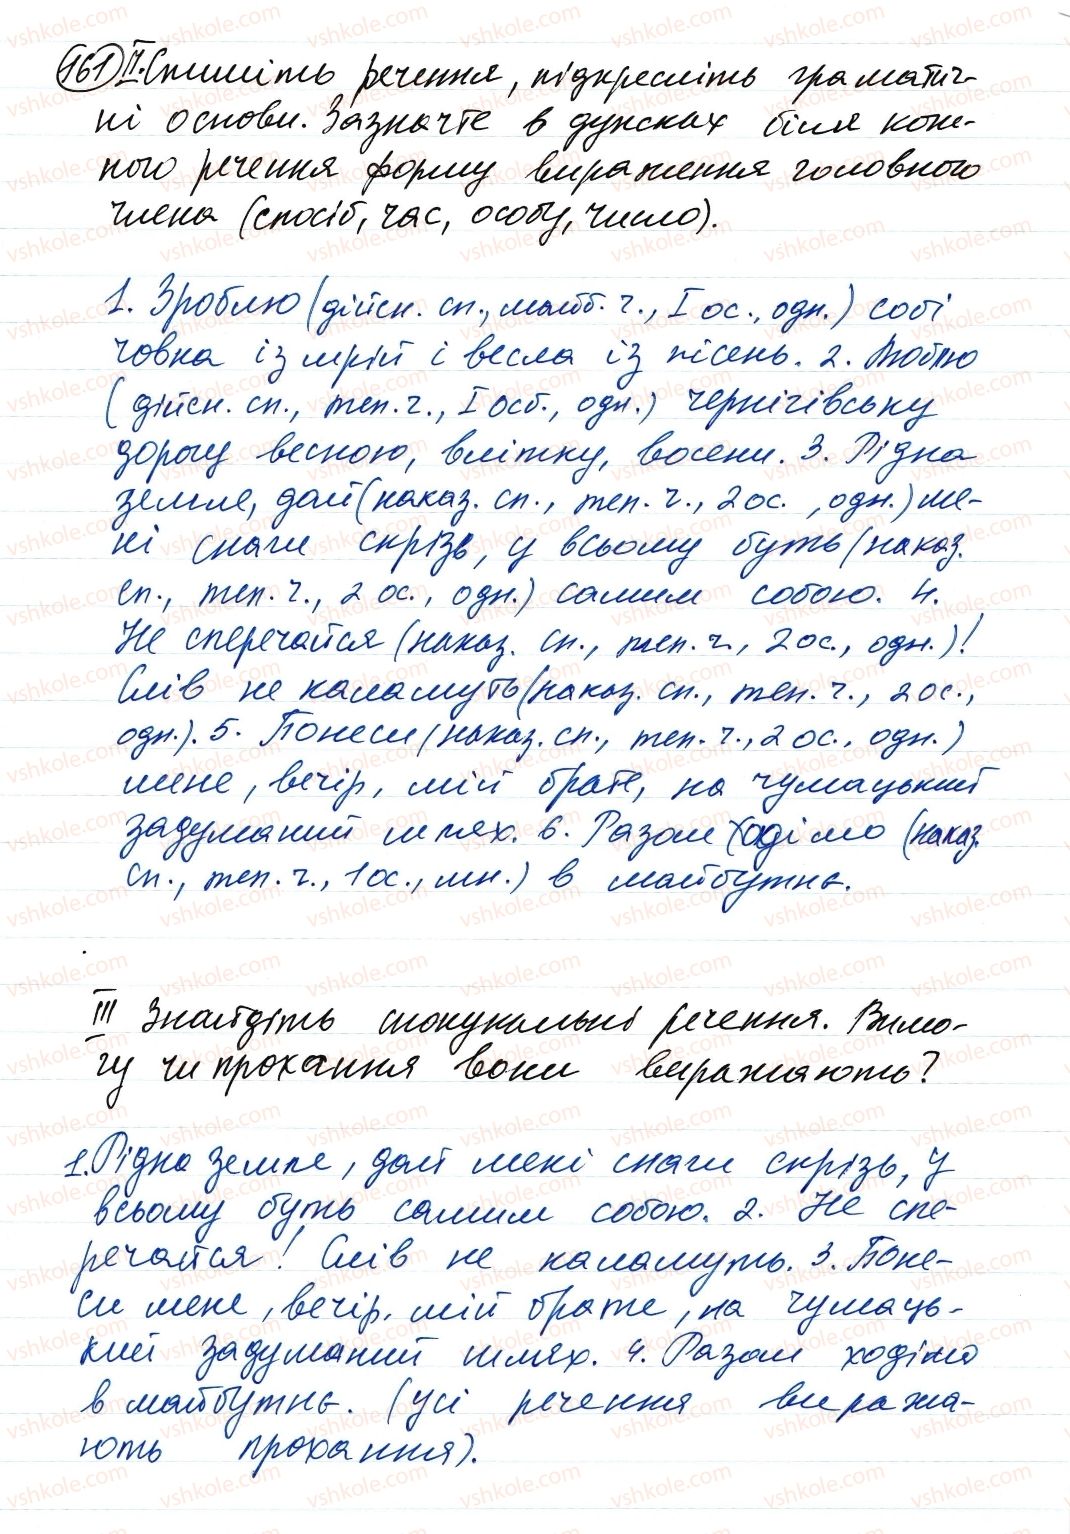 161 II. Спишіть речення, підкресліть граматич-
ні основи. Зазначте в дужках біля кож-
ного речення форму вираження головного
члена (спосіб, час, особу, число).
1. Зроблю (дійсн. сп., майб. ч., I ос., одн.) собі
човна із мрій і весла із пісень. 2. Люблю
(дійсн. сп., теп. ч., I осб., одн.) чернігівську
дорогу весною, влітку, восени. 3. Рідна
земле, дай (наказ. сп., теп. ч., 2 ос., одн.) ме-
ні снаги скрізь, у всьому буть (наказ.
сп., теп. ч., 2 ос., одн.) самим собою. 4.
Не сперечайся (наказ. сп., теп. ч., 2 ос., одн.)!
Слів не каламуть (наказ. сп., теп. ч., 2 ос.,
одн.). 5. Понеси (наказ. сп., теп. ч., 2 ос., одн.)
мене, вечір, мій брате, на чумацький
задуманий шлях. 6. Разом ходімо (наказ.
сп., теп. ч., 1 ос., мн.) в майбутнє.
III Знайдіть спонукальні речення. Вимо-
гу чи прохання вони виражають?
1. Рідна земле, дай мені снаги скрізь, у
всьому буть самим собою. 2. Не спе-
речайся! Слів не каламуть. 3. Поне-
си мене, вечір, мій брате, на чумаць-
кий задуманий шлях. 4. Разом ходімо
в майбутнє. (усі речення виража-
ють прохання).